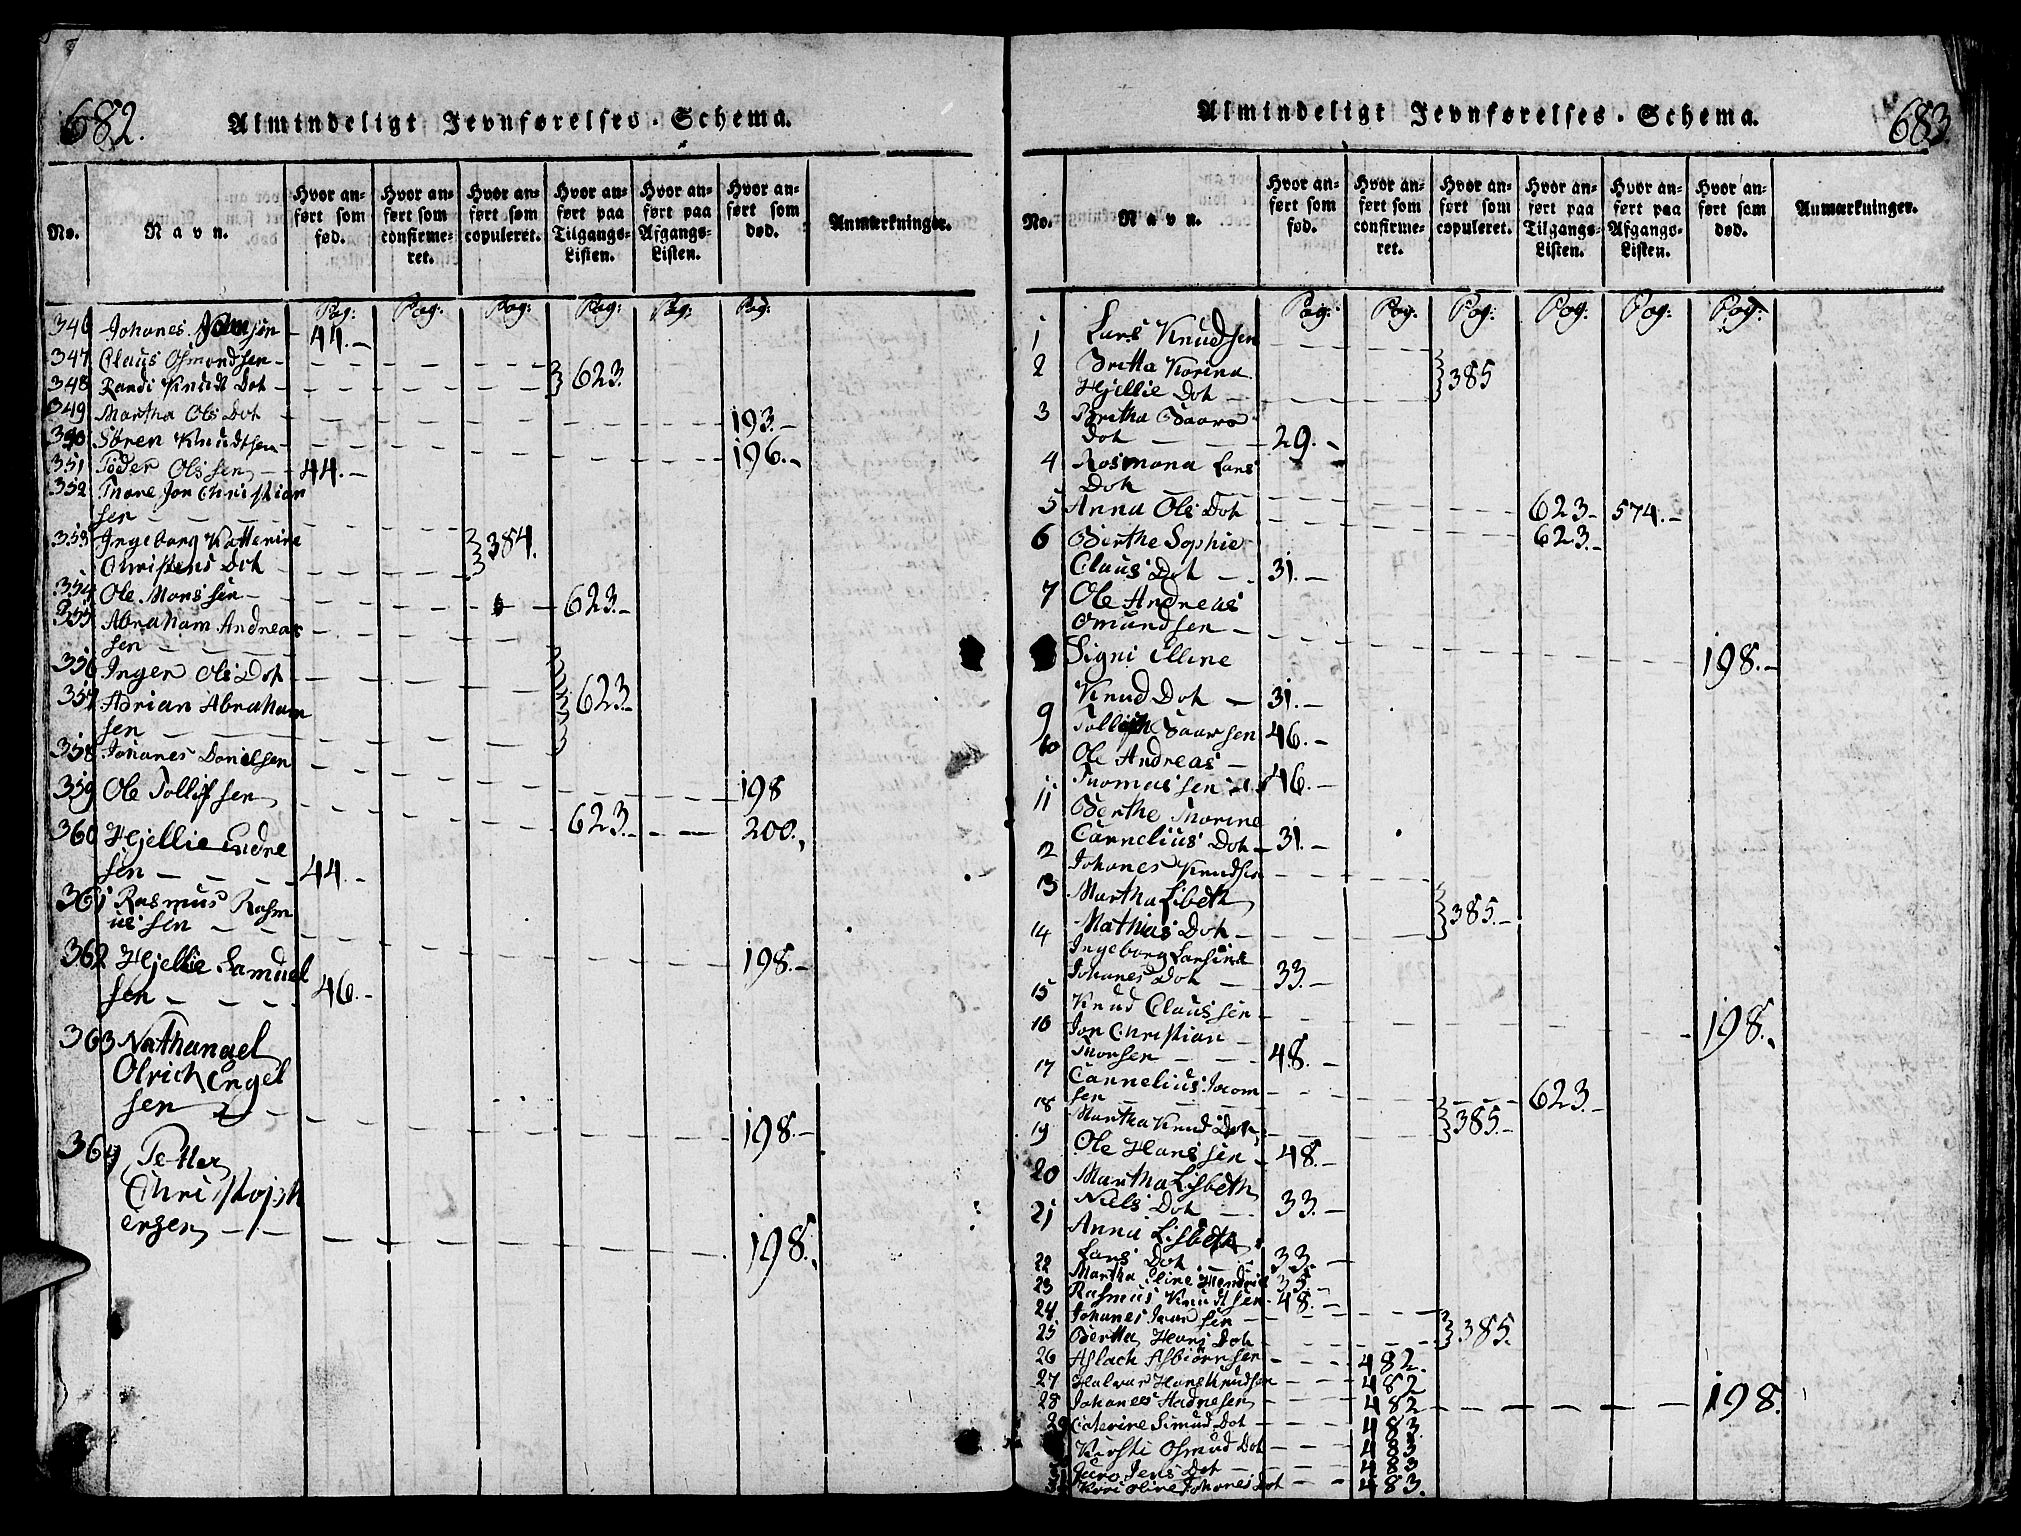 682.
Almindeligt Jevnførelses-Schema.
No.
Navn.
Hvor anført som fød.
Hvor anført som confirmeret.
Hvor anført som copuleret.
Hvor anført paa Tilgangs-Listen.
Hvor anført paa Afgangs-Listen.
Hvor anført som død.
Anmærkninger.
Pag: Pag. Pag: Pag: Pag: Pag:
346 Johanes 44.-
347 Claus Osmondsen -
348 Randi Knudt Dot - } 623.
349 Martha Ols Dot - 193.-
350 Søren Knudtsen - 196.-
351 Peder Olssen - 44.-
352 Thore Jon Christian
sen -
353 Ingeborg Katterine } 384.
Christens Dot -
354 Ole Monssen - 623.-
355 Abraham Andreas
sen -
356 Inger Ols Dot -
357 Adrian Abraham } 623.-
sen -
358 Johanes Danielsen
359 Ole Tollifsen 198
360 Hjellie Endre 623.- 200.,
sen - 44.-
361 Rasmus Rasm
ussen -
362 Hjellie Samuel 198.-
sen - 46.-
363 Nathanael
Olrich Engel
sen - 198.-
364 Petter
Christoph
ersen - 198.,
683.
Almindeligt Jevnførelses-Schema.
No.
Navn.
Hvor anført som fød.
Hvor anført som confirmeret.
Hvor anført som copuleret.
Hvor anført paa Tilgangs-Listen.
Hvor anført paa Afgangs-Listen.
Hvor anført som død.
Anmærkninger.
Pag: Pag. Pag: Pag: Pag: Pag:
1 Lars Knudsen
2 Britta Korina } 385
Hjellie Dot -
3 Britha Baars
Dot - 29.-
4 Rosmona Lars
Dot
5 Anna Ols Dot 623- 574.-
6 Berthe Sophie 623.-
Claus Dot - 31.-
7 Ole Andreas
Omundsen -
Signi Elline 198.-
Knud Dot - 31.-
9 Baarsen 46.-
10 Ole Andreas -
Thomassen 46.-
11 Berthe Thorine
Carnelius Dot - 31.-
12 Johanes Knudsen
13 Martha Lisbeth } 385.-
Mathias Dot -
14 Ingeborg Larsine
Johanes Dot - 33.-
15 Knud Claussen - 198.,
16 Jon Christian -
Thorsen - 48.-
17 Carnelius
sen - 623.-
18 Martha Knud Dot, } 385.-
19 Ole Hanssen - 48.-
20 Martha Lisbeth
Niels Dot - 33.-
21 Anna Lisbeth
Lars Dot - 33.-
22 Martha Eline 35.-
23 Rasmus Knudtsen - 48.-
24 Johanes sen -
25 Bertha Hans Dot - } 385.
26 Aslach Asbiørnsen - 482.
27 Halvar Hans Knudsen - 482
28 Johanes Andresen - 482 198.
29 Caterine Simud Dot - 483
Kirsti Osmud Dot - 483
Guro Jens Dot - 483
Kari Oline Johanes Dot - 483.